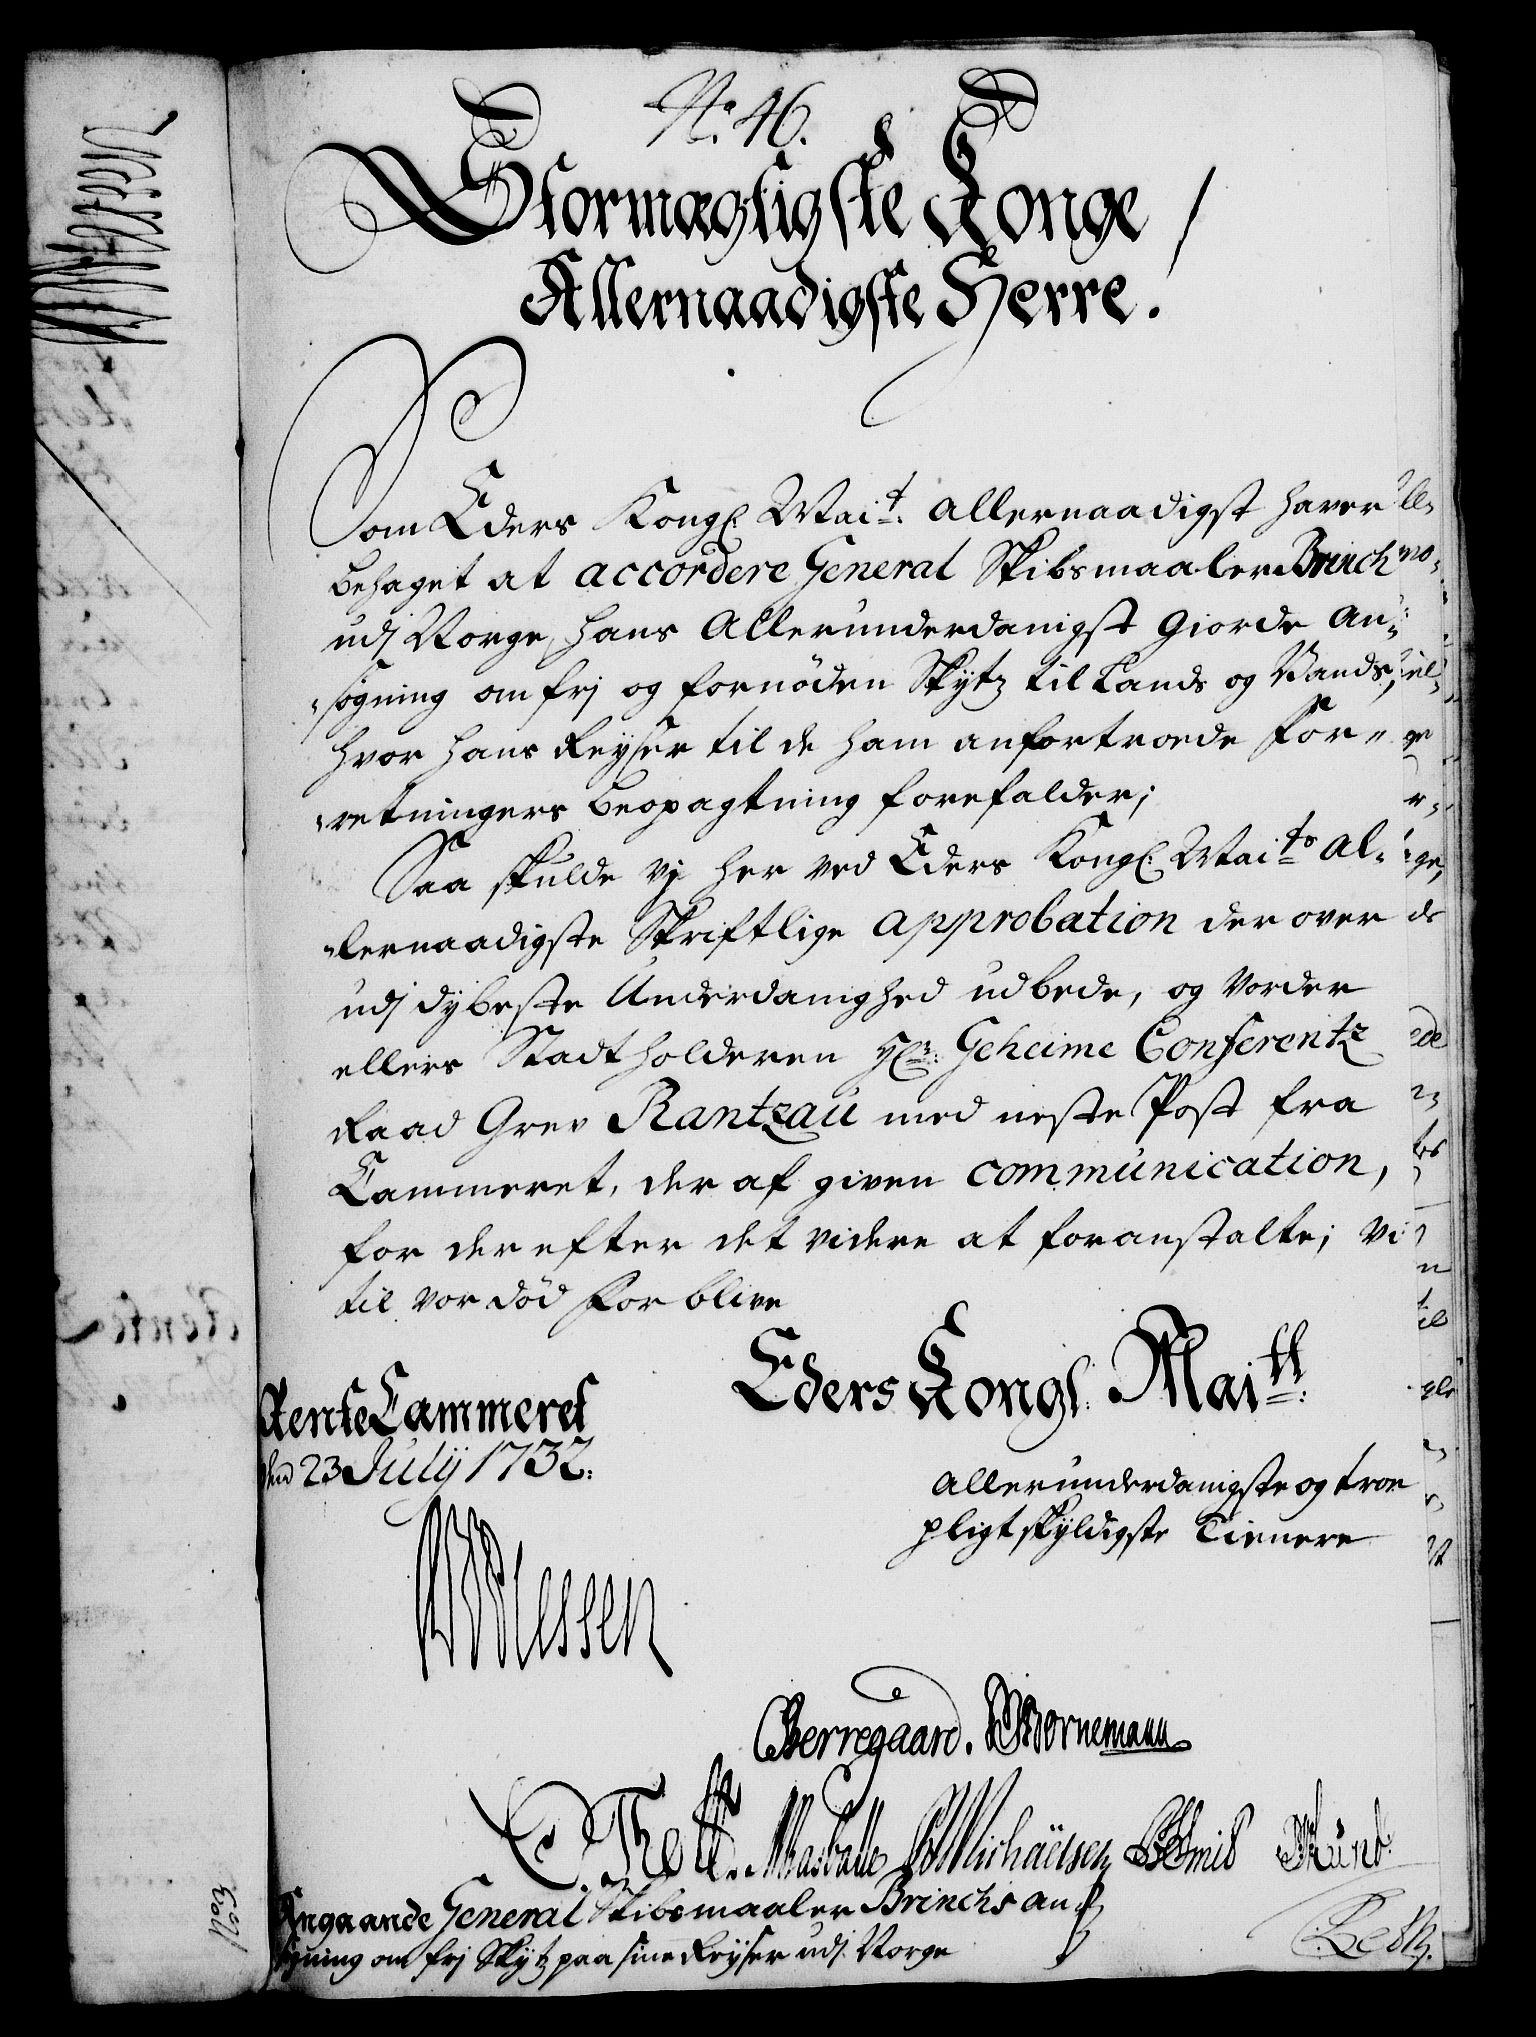 No. 46.
Stormægtigste Konge /
Allernaadigste Herre.
Som Eders Kongl. Mait. allernaadigst haver
behaget at accordere General Skibsmaaler Brinch
udj Norge, hans allerunderdanigst giorde An-
søgning om frj og fornøden Skytz til Lands og Vands,
hvor hans Reyser til de ham anfortroede For-
retningers beopagtning forefalder;
Saa skulde vj her ved Eders Kongl. Maits al-
lernaadigste Skriftlige approbation der over
udj dybeste Underdanighed udbede, og vorder
ellers Stadtholderen Hr. Geheime Conferentz
Raad Grev Rantzau med neste Post fra
Cammeret, der af given communication,
for der efter det videre at foranstalte; Vi
til vor død forblive
Eders Kongl. Maitt.
RenteCammeret
den 23 Julij 1732.
allerunderdanigste og troe
pligtskyldigste Tienere
CAvPlessen
Berregaard. Bornemann
Thott. Michaëlsen Smid Kunt
Angaaende General Skibsmaaler Brinchs an-
søgning om frj Skytz paa sine Reyser udj Norge